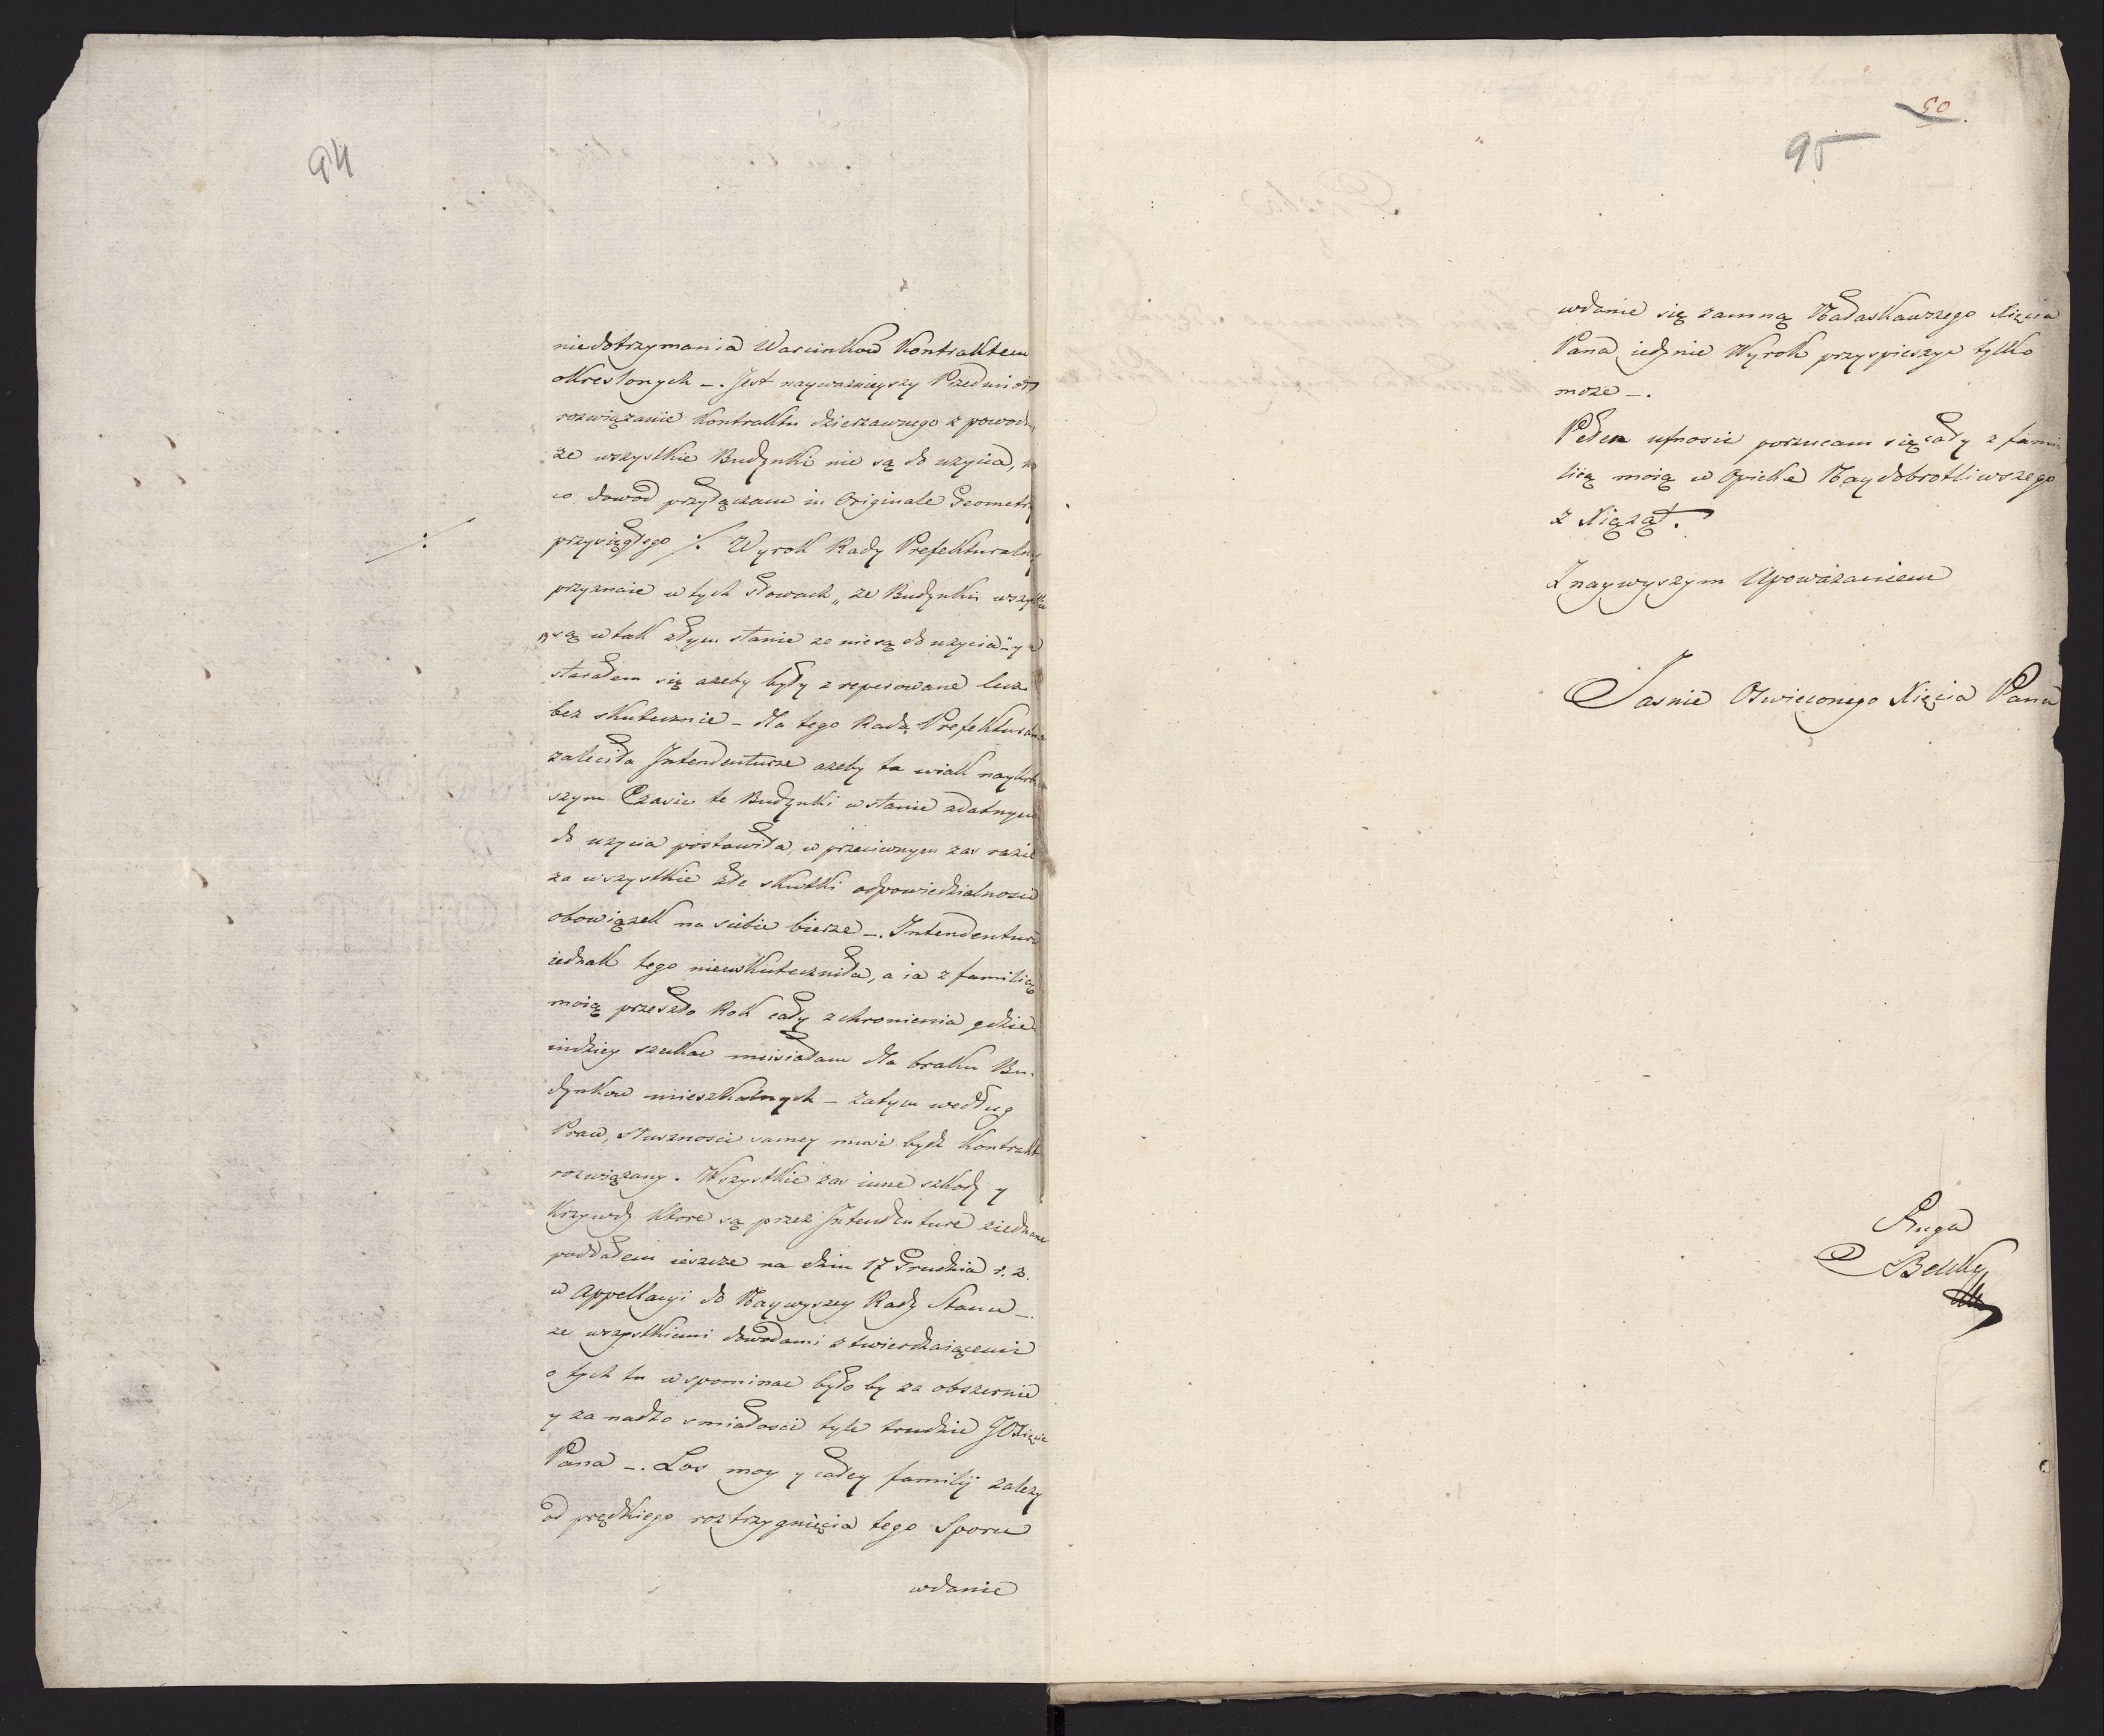 94
niedotrzymania Warunkow Kontraktem
okreslonych –. Jest naywaznieyszy Przedmiot
rozwiązanie Kontraktu dzierzawnego z powodu
ze wszystkie Budynki nie są do uzycia, na
co dowod przyłączam in Originale Geometry
przysięgłego ·/. Wyrok Rady Prefekturalney
·/.
przyznaie w tych słowach „ ze Budynki wszystkie
„są w tak złym stanie ze nie są do uzycia" y
starałem się azeby były zreperowane lecz
bez skutecznie – dla tego Rada Prefekturalna
zaleciła Intendenturze azeby ta w iak naykrot
szym Czasie te Budynki w stanie zdatnym
do uzycia postawiła, w przeciwnym zas razie
za wszystkie złe skutki odpowiedzialnosci
obowiązek na siebie bierze –. Intendentura
iednak tego nieuskuteczniła, a ia z familią
moią przeszło Rok cały zchronienia gdzie
indziey szukac musiałam dla braku Bu-
dynkow mieszkalnych – zatym według
Praw, słusznosci samey musi bydz Kontrakt
rozwiązany. Wszystkie zas inne szkody y
Krzywdy ktore są przez Intendenture ziednane
poddałem ieszcze na dniu 17 Grudnia r. z.
w Appellacyi do Naywyzszey Rady Stanu –.
ze wszystkiemi dowodami stwierdzaiącemi
o tych tu wspominac było by za obszernie
y za nadto smiałosci tyle trudzic JOXięcia
Pana –. Los moy y całey familij zalezy
od prędkiego roztrzygnięcia tego Sporu
wdanie
50
95
wdanie się zamną Nałaskawszego Xięcia
Pana iedynie Wyrok przyspieszyc tylko
moze –.
Pełen ufnosci porzucam się cały z fami-
lią moią w Opiekę Naydobrotliwszego
z Xiąząt.
Z naywyszym Upowazaniem
Jasnie Oswieconego Xięcia Pana
Sługa